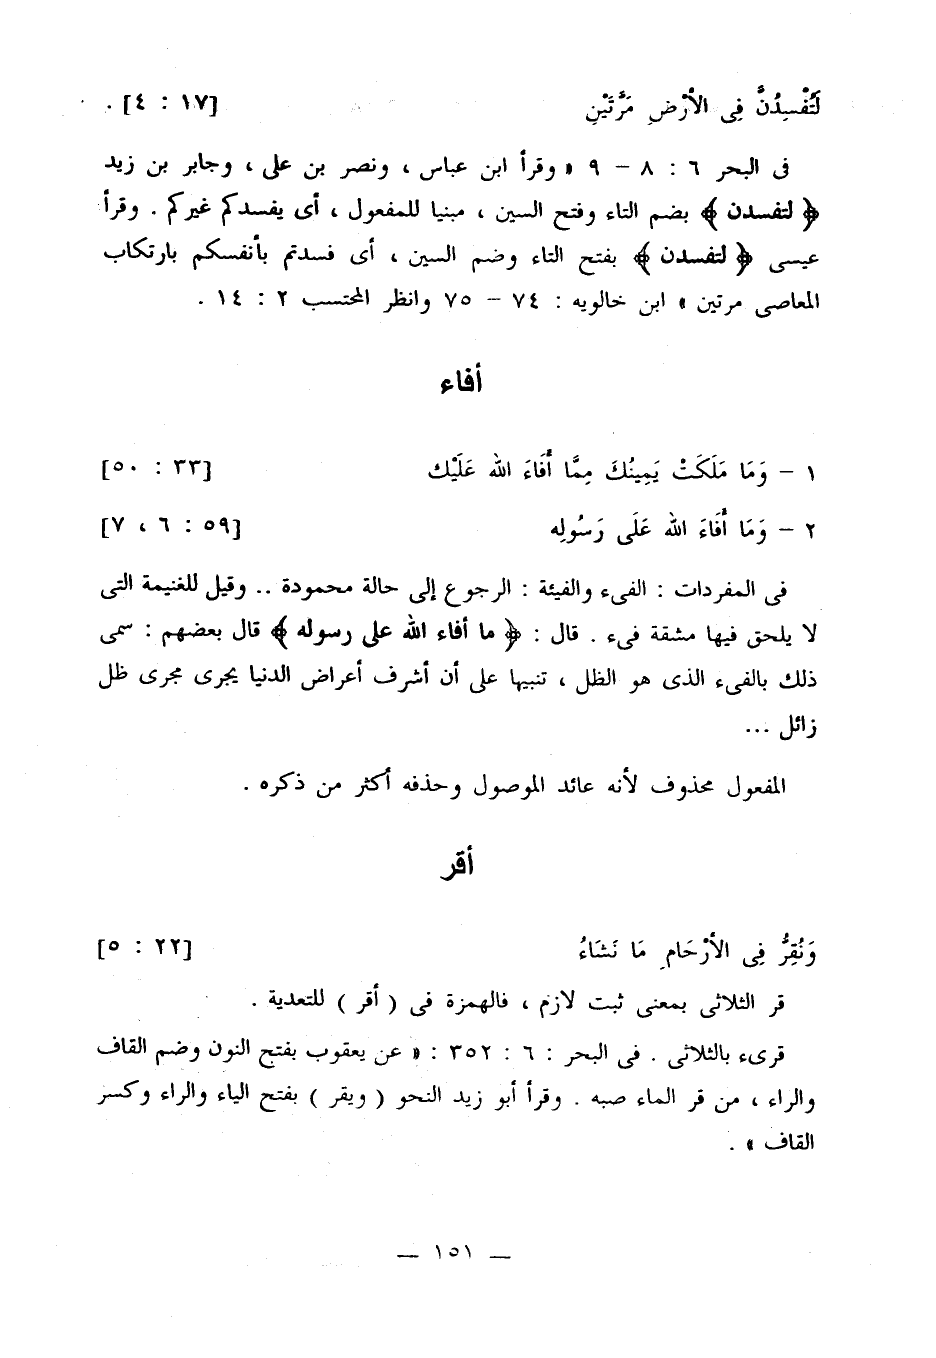 لَتُفْسِدُنَّ فِى الأَرْضِ مَرَّتَيْنِ [١٧ : ٤] .
فى البحر ٦ : ٨ – ٩ « وقرأ ابن عباس ، ونصر بن على ، وجابر بن زيد
﴿ لتفسدن ﴾ بضم التاء وفتح السين ، مبنيا للمفعول ، أى يفسدكم غيركم . وقرأ
عيسى ﴿ لتفسدن ﴾ بفتح التاء وضم السين ، أى فسدتم بأنفسكم بارتكاب
المعاصى مرتين » ابن خالويه : ٧٤ – ٧٥ وانظر المحتسب ٢ : ١٤ .
أفاء
١ – وَمَا مَلَكَتْ يَمِينُكَ مِمَّا أَفَاءَ الله عَلَيْك [٣٣ : ٥٠]
٢ – وَمَا أَفَاءَ الله عَلَى رَسُولِه [٥٩ : ٦ ، ٧]
فى المفردات : الفىء والفيئة : الرجوع إلى حالة محمودة .. وقيل للغنيمة التى
لا يلحق فيها مشقة فىء . قال : ﴿ ما أفاء الله على رسوله ﴾ قال بعضهم : سمى
ذلك بالفىء الذى هو الظل ، تنبيها على أن أشرف أعراض الدنيا يجرى مجرى ظل
زائل ...
المفعول محذوف لأنه عائد الموصول وحذفه أكثر من ذكره .
أقر
وَنُقِرُّ فِى الأَرْحَامِ مَا نَشَاءُ [٢٢ : ٥]
قر الثلاثى بمعنى ثبت لازم ، فالهمزة فى ( أقر ) للتعدية .
قرىء بالثلاثى . فى البحر : ٦ : ٣٥٢ : « عن يعقوب بفتح النون وضم القاف
والراء ، من قر الماء صبه . وقرأ أبو زيد النحو ( ويقر ) بفتح الياء والراء وكسر
القاف » .
— ١٥١ —